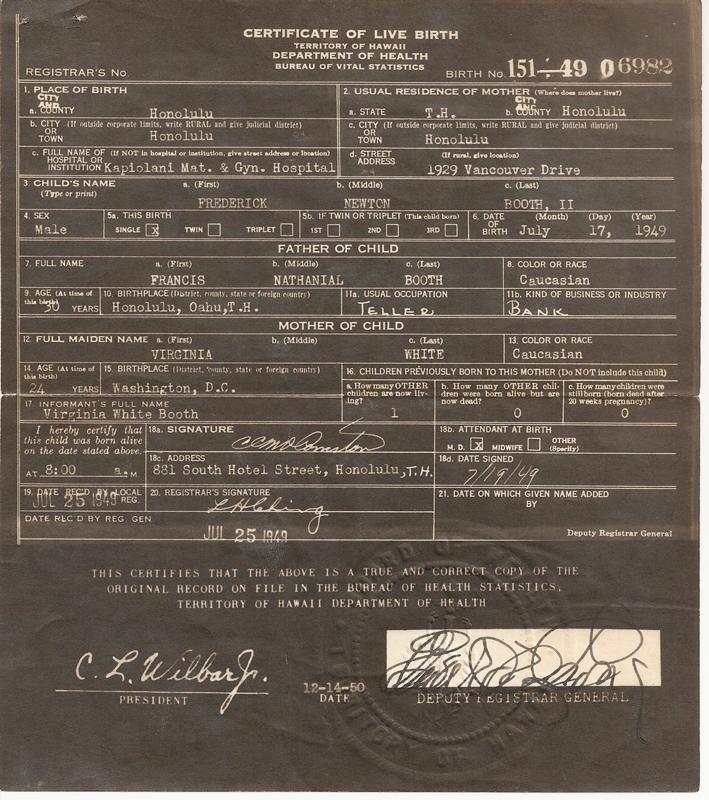 CERTIFICATE OF LIVE BIRTH
TERRITORY OF HAWAII
DEPARTMENT OF HEALTH
BUREAU OF VITAL STATISTICS
REGISTRAR'S No.
BIRTH No. 151-49 06982
1. PLACE OF BIRTH
CITY AND
a. COUNTY Honolulu
b. CITY (If outside corporate limits, write RURAL and give judicial district)
OR TOWN Honolulu
c. FULL NAME OF (If NOT in hospital or institution, give street address or location)
HOSPITAL OR INSTITUTION Kapiolani Mat. & Gyn. Hospital
2. USUAL RESIDENCE OF MOTHER (Where does mother live?)
CITY AND
a. STATE T.H. b. COUNTY Honolulu
c. CITY (If outside corporate limits, write RURAL and give judicial district)
OR TOWN Honolulu
d. STREET ADDRESS (If rural, give location)
1929 Vancouver Drive
3. CHILD'S NAME a. (First) b. (Middle) c. (Last)
(Type or print) FREDERICK NEWTON BOOTH, II
4. SEX 5a. THIS BIRTH 5b. IF TWIN OR TRIPLET (This child born) 6. DATE OF BIRTH (Month) (Day) (Year)
Male SINGLE x TWIN TRIPLET 1ST 2ND 3RD July 17, 1949
FATHER OF CHILD
7. FULL NAME a. (First) b. (Middle) c. (Last) 8. COLOR OR RACE
FRANCIS NATHANIAL BOOTH Caucasian
9. AGE (At time of this birth) 10. BIRTHPLACE (District, county, state or foreign country) 11a. USUAL OCCUPATION 11b. KIND OF BUSINESS OR INDUSTRY
30 YEARS Honolulu, Oahu,T.H. TELLER BANK
MOTHER OF CHILD
12. FULL MAIDEN NAME a. (First) b. (Middle) c. (Last) 13. COLOR OR RACE
VIRGINIA WHITE Caucasian
14. AGE (At time of this birth) 15. BIRTHPLACE (District, county, state or foreign country)
24 YEARS Washington, D.C.
16. CHILDREN PREVIOUSLY BORN TO THIS MOTHER (Do NOT include this child)
a. How many OTHER children are now living? 1
b. How many OTHER children were born alive but are now dead? 0
c. How many children were stillborn (born dead after 20 weeks pregnancy)? 0
17. INFORMANT'S FULL NAME
Virginia White Booth
I hereby certify that
this child was born alive
on the date stated above.
AT 8:00 a.M
18a. SIGNATURE
18b. ATTENDANT AT BIRTH
M. D. x MIDWIFE OTHER (Specify)
18c. ADDRESS
881 South Hotel Street, Honolulu,T.H.
18d. DATE SIGNED
7/19/49
19. DATE REC'D BY LOCAL REG.
JUL 25 1949
20. REGISTRAR'S SIGNATURE
21. DATE ON WHICH GIVEN NAME ADDED
BY
Deputy Registrar General
DATE REC'D BY REG. GEN
JUL 25 1949
THIS CERTIFIES THAT THE ABOVE IS A TRUE AND CORRECT COPY OF THE
ORIGINAL RECORD ON FILE IN THE BUREAU OF HEALTH STATISTICS,
TERRITORY OF HAWAII DEPARTMENT OF HEALTH
C. L. Wilbar Jr.
PRESIDENT
12-14-50
DATE
DEPUTY REGISTRAR GENERAL